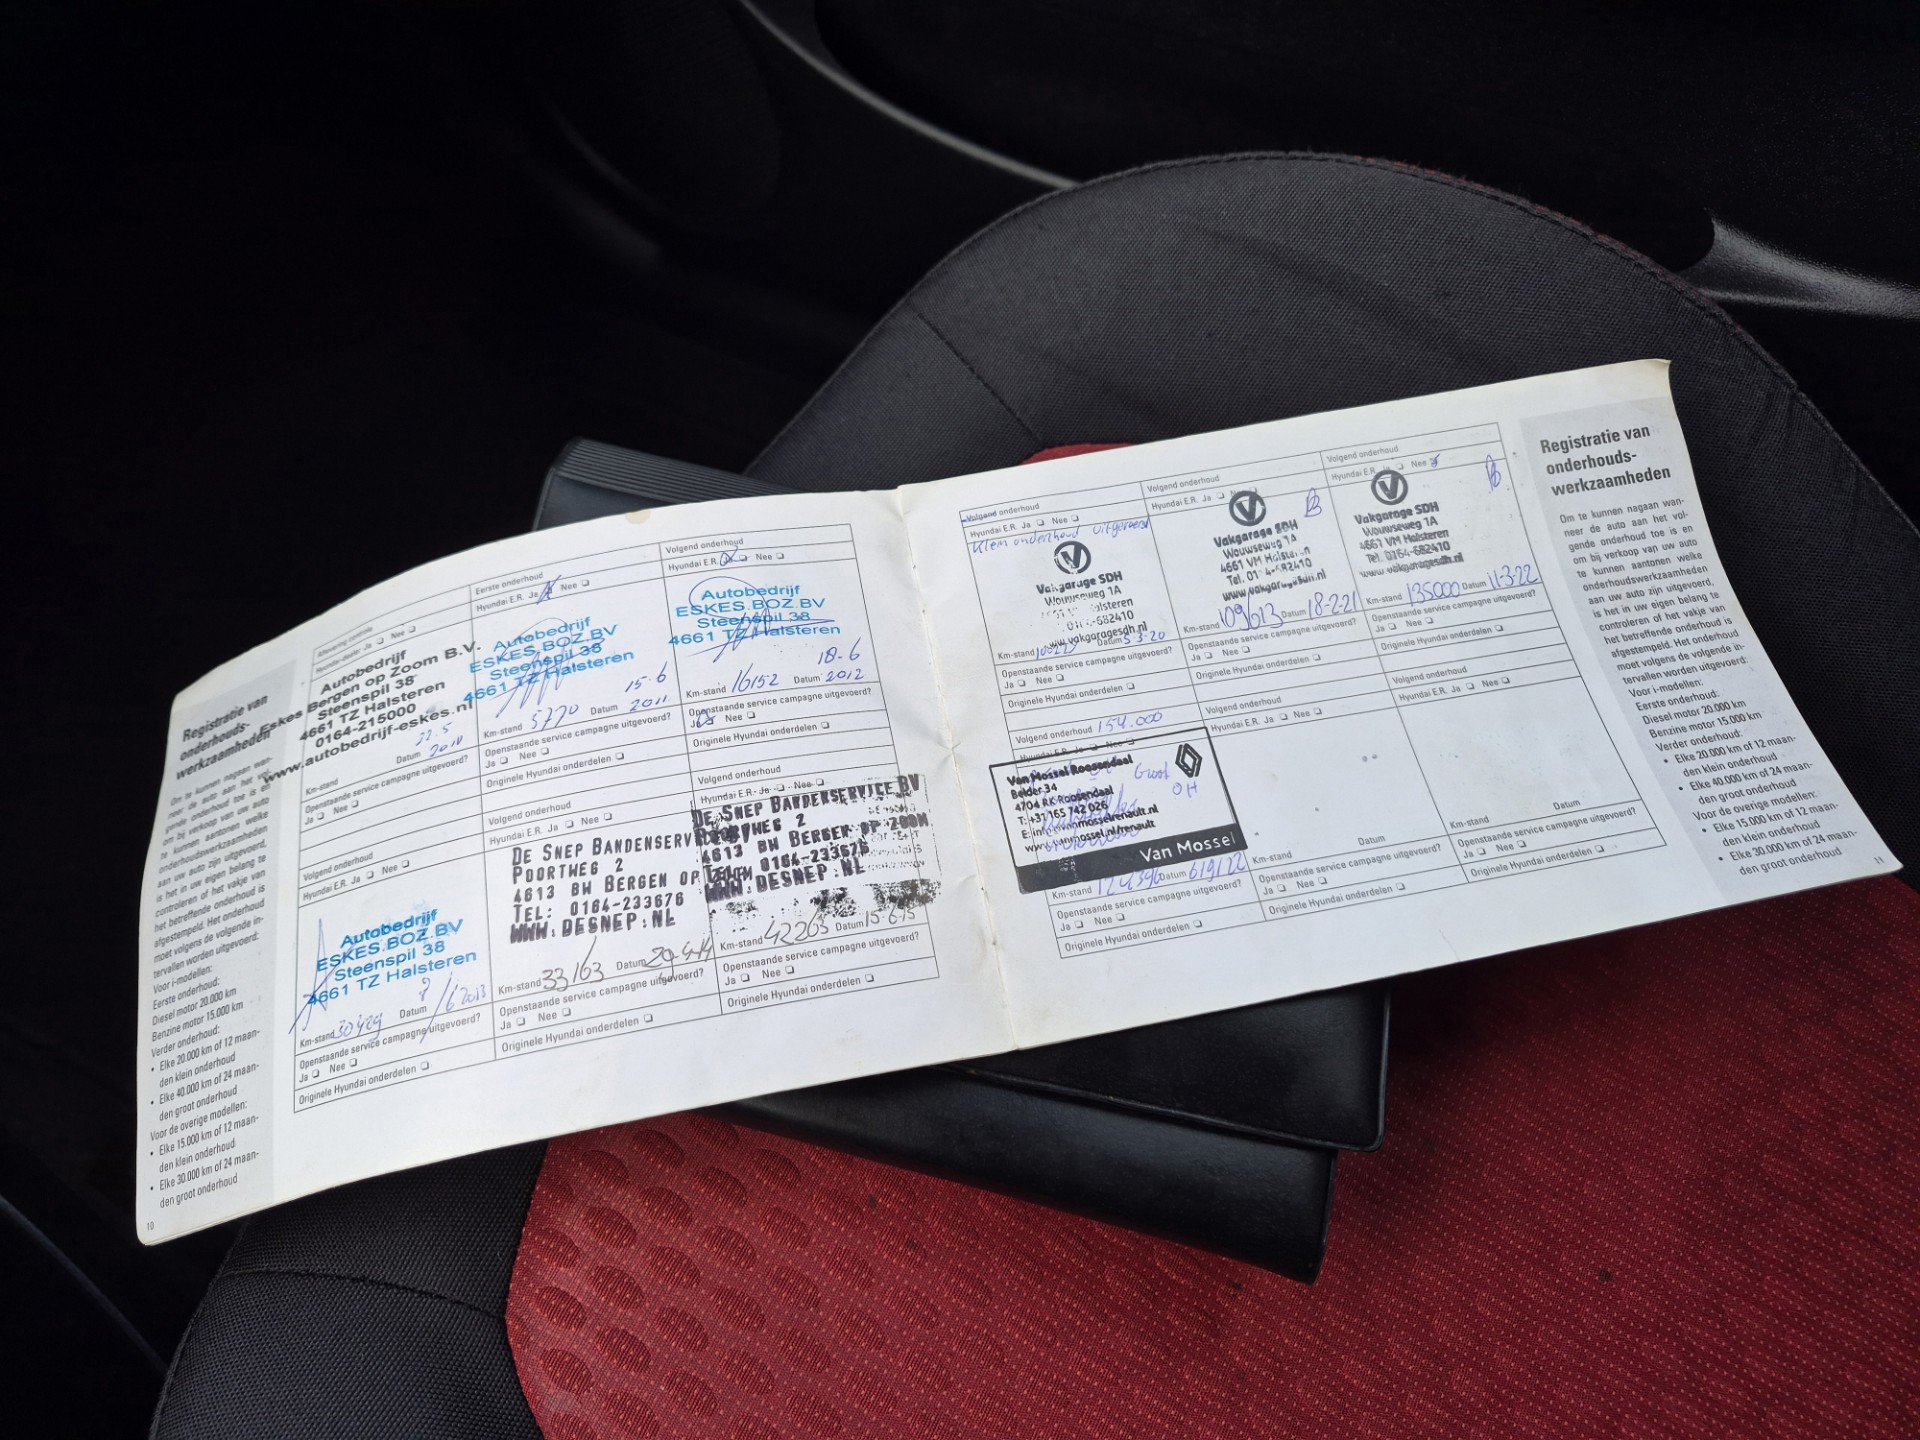 Registratie van
onderhouds-
werkzaamheden
Om te kunnen nagaan wan-
neer de auto aan het vol-
gende onderhoud toe is en
om bij verkoop van uw auto
te kunnen aantonen welke
onderhoudswerkzaamheden
aan uw auto zijn uitgevoerd,
is het in uw eigen belang te
controleren of het vakje van
het betreffende onderhoud is
afgestempeld. Het onderhoud
moet volgens de volgende in-
tervallen worden uitgevoerd:
Voor i-modellen:
Eerste onderhoud:
Diesel motor 20.000 km
Benzine motor 15.000 km
Verder onderhoud:
• Elke 20.000 km of 12 maan-
den klein onderhoud
• Elke 40.000 km of 24 maan-
den groot onderhoud
Voor de overige modellen:
• Elke 15.000 km of 12 maan-
den klein onderhoud
• Elke 30.000 km of 24 maan-
den groot onderhoud
10
Aflevering controle
Hyundai-dealer Ja Nee
Autobedrijf
Eskes Bergen op Zoom B.V.
Steenspil 38
4661 TZ Halsteren
0164-215000
www.autobedrijf-eskes.nl
22.5
Km-stand Datum 2010
Openstaande service campagne uitgevoerd?
Ja Nee
Eerste onderhoud
Hyundai E.R. Ja Nee
Autobedrijf
ESKES.BOZ.BV
Steenspil 38
4661 TZ Halsteren
15-6
Km-stand 5770 Datum 2011
Openstaande service campagne uitgevoerd?
Ja Nee
Originele Hyundai onderdelen
Volgend onderhoud
Hyundai E.R. Ja Nee
Autobedrijf
ESKES.BOZ.BV
Steenspil 38
4661 TZ Halsteren
18-6
Km-stand 16152 Datum 2012
Openstaande service campagne uitgevoerd?
Ja Nee
Originele Hyundai onderdelen
Volgend onderhoud
Hyundai E.R. Ja Nee
Autobedrijf
ESKES.BOZ.BV
Steenspil 38
4661 TZ Halsteren
Km-stand 30429 Datum 8/6 2013
Openstaande service campagne uitgevoerd?
Ja Nee
Originele Hyundai onderdelen
Volgend onderhoud
Hyundai E.R. Ja Nee
De Snep Bandenservice
Poortweg 2
4613 BW Bergen op
Tel: 0164-233676
WWW.DESNEP.NL
Km-stand 33163 Datum 29-4-14
Openstaande service campagne uitgevoerd?
Ja Nee
Originele Hyundai onderdelen
Volgend onderhoud
Hyundai E.R. Ja Nee
De Snep Bandenservice BV
Poortweg 2
4613 BW Bergen op Zoom
Tel: 0164-233676
WWW.DESNEP.NL
Km-stand 42205 Datum 15-6-15
Openstaande service campagne uitgevoerd?
Ja Nee
Originele Hyundai onderdelen
Volgend onderhoud
Hyundai E.R. Ja Nee
Klein onderhoud uitgevoerd
Vakgarage SDH
Wouwseweg 1A
Halsteren
0164-682410
www.vakgaragesdh.nl
Km-stand Datum 5-3-20
Openstaande service campagne uitgevoerd?
Ja Nee
Originele Hyundai onderdelen
Volgend onderhoud
Hyundai E.R. Ja Nee
Vakgarage SDH
Wouwseweg 1A
4661 VM Halsteren
Tel. 0164-682410
www.vakgaragesdh.nl
Km-stand 109613 Datum 18-2-21
Openstaande service campagne uitgevoerd?
Ja Nee
Originele Hyundai onderdelen
Volgend onderhoud
Hyundai E.R. Ja Nee
Vakgarage SDH
Wouwseweg 1A
4661 VM Halsteren
Tel. 0164-682410
www.vakgaragesdh.nl
Km-stand 135000 Datum 11-3-22
Openstaande service campagne uitgevoerd?
Ja Nee
Originele Hyundai onderdelen
Volgend onderhoud 154.000
Hyundai E.R. Ja Nee
Van Mossel Roosendaal
Belder 34
4704 RK Roosendaal
T: +31 165 742 026
E: info@vanmosselrenault.nl
www.vanmossel.nl/renault
Van Mossel
Groot
OH
Km-stand 124396 Datum 6/9/22
Openstaande service campagne uitgevoerd?
Ja Nee
Originele Hyundai onderdelen
Volgend onderhoud
Hyundai E.R. Ja Nee
Km-stand Datum
Openstaande service campagne uitgevoerd?
Ja Nee
Originele Hyundai onderdelen
Volgend onderhoud
Hyundai E.R. Ja Nee
Km-stand Datum
Openstaande service campagne uitgevoerd?
Ja Nee
Originele Hyundai onderdelen
Registratie van
onderhouds-
werkzaamheden
Om te kunnen nagaan wan-
neer de auto aan het vol-
gende onderhoud toe is en
om bij verkoop van uw auto
te kunnen aantonen welke
onderhoudswerkzaamheden
aan uw auto zijn uitgevoerd,
is het in uw eigen belang te
controleren of het vakje van
het betreffende onderhoud is
afgestempeld. Het onderhoud
moet volgens de volgende in-
tervallen worden uitgevoerd:
Voor i-modellen:
Eerste onderhoud:
Diesel motor 20.000 km
Benzine motor 15.000 km
Verder onderhoud:
• Elke 20.000 km of 12 maan-
den klein onderhoud
• Elke 40.000 km of 24 maan-
den groot onderhoud
Voor de overige modellen:
• Elke 15.000 km of 12 maan-
den klein onderhoud
• Elke 30.000 km of 24 maan-
den groot onderhoud
11